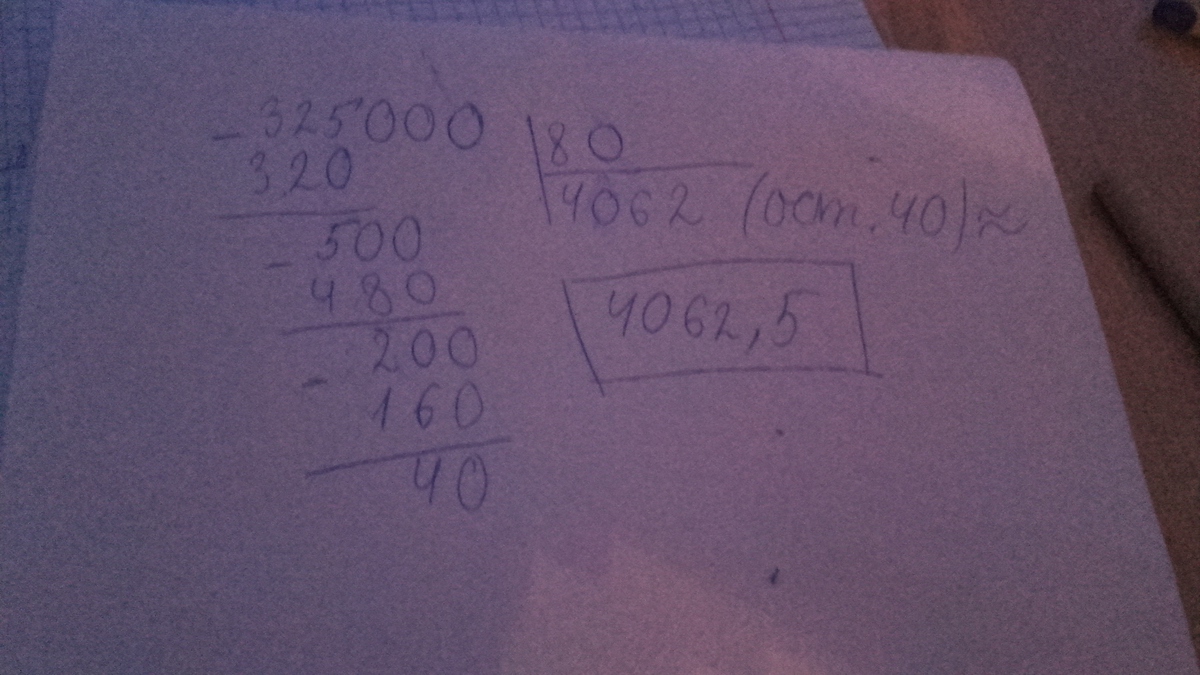 - 325000 | 80
320
4062 (ост. 40) ≈
- 500
480
4062,5
- 200
160
40